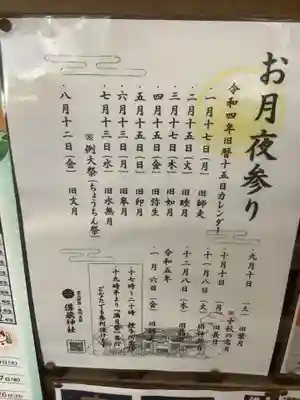 お月夜参り
令和四年旧暦十五日カレンダー
一月十七日（月）旧師走
二月十五日（火）旧睦月
三月十七日（木）旧如月
四月十五日（金）旧弥生
五月十五日（日）旧卯月
六月十三日（月）旧皐月
七月十三日（水）旧水無月
※例大祭（ちょうちん祭）
八月十二日（金）旧文月
九月十日（土）旧葉月
※中秋の名月
十月十日（月）旧長月
十一月八日（火）旧神無月
十二月八日（木）
令和五年
一月六日（金）
十七時～二十時
十九時半より「満月祭」斎行
どなたでも参列頂けます
溝旗神社